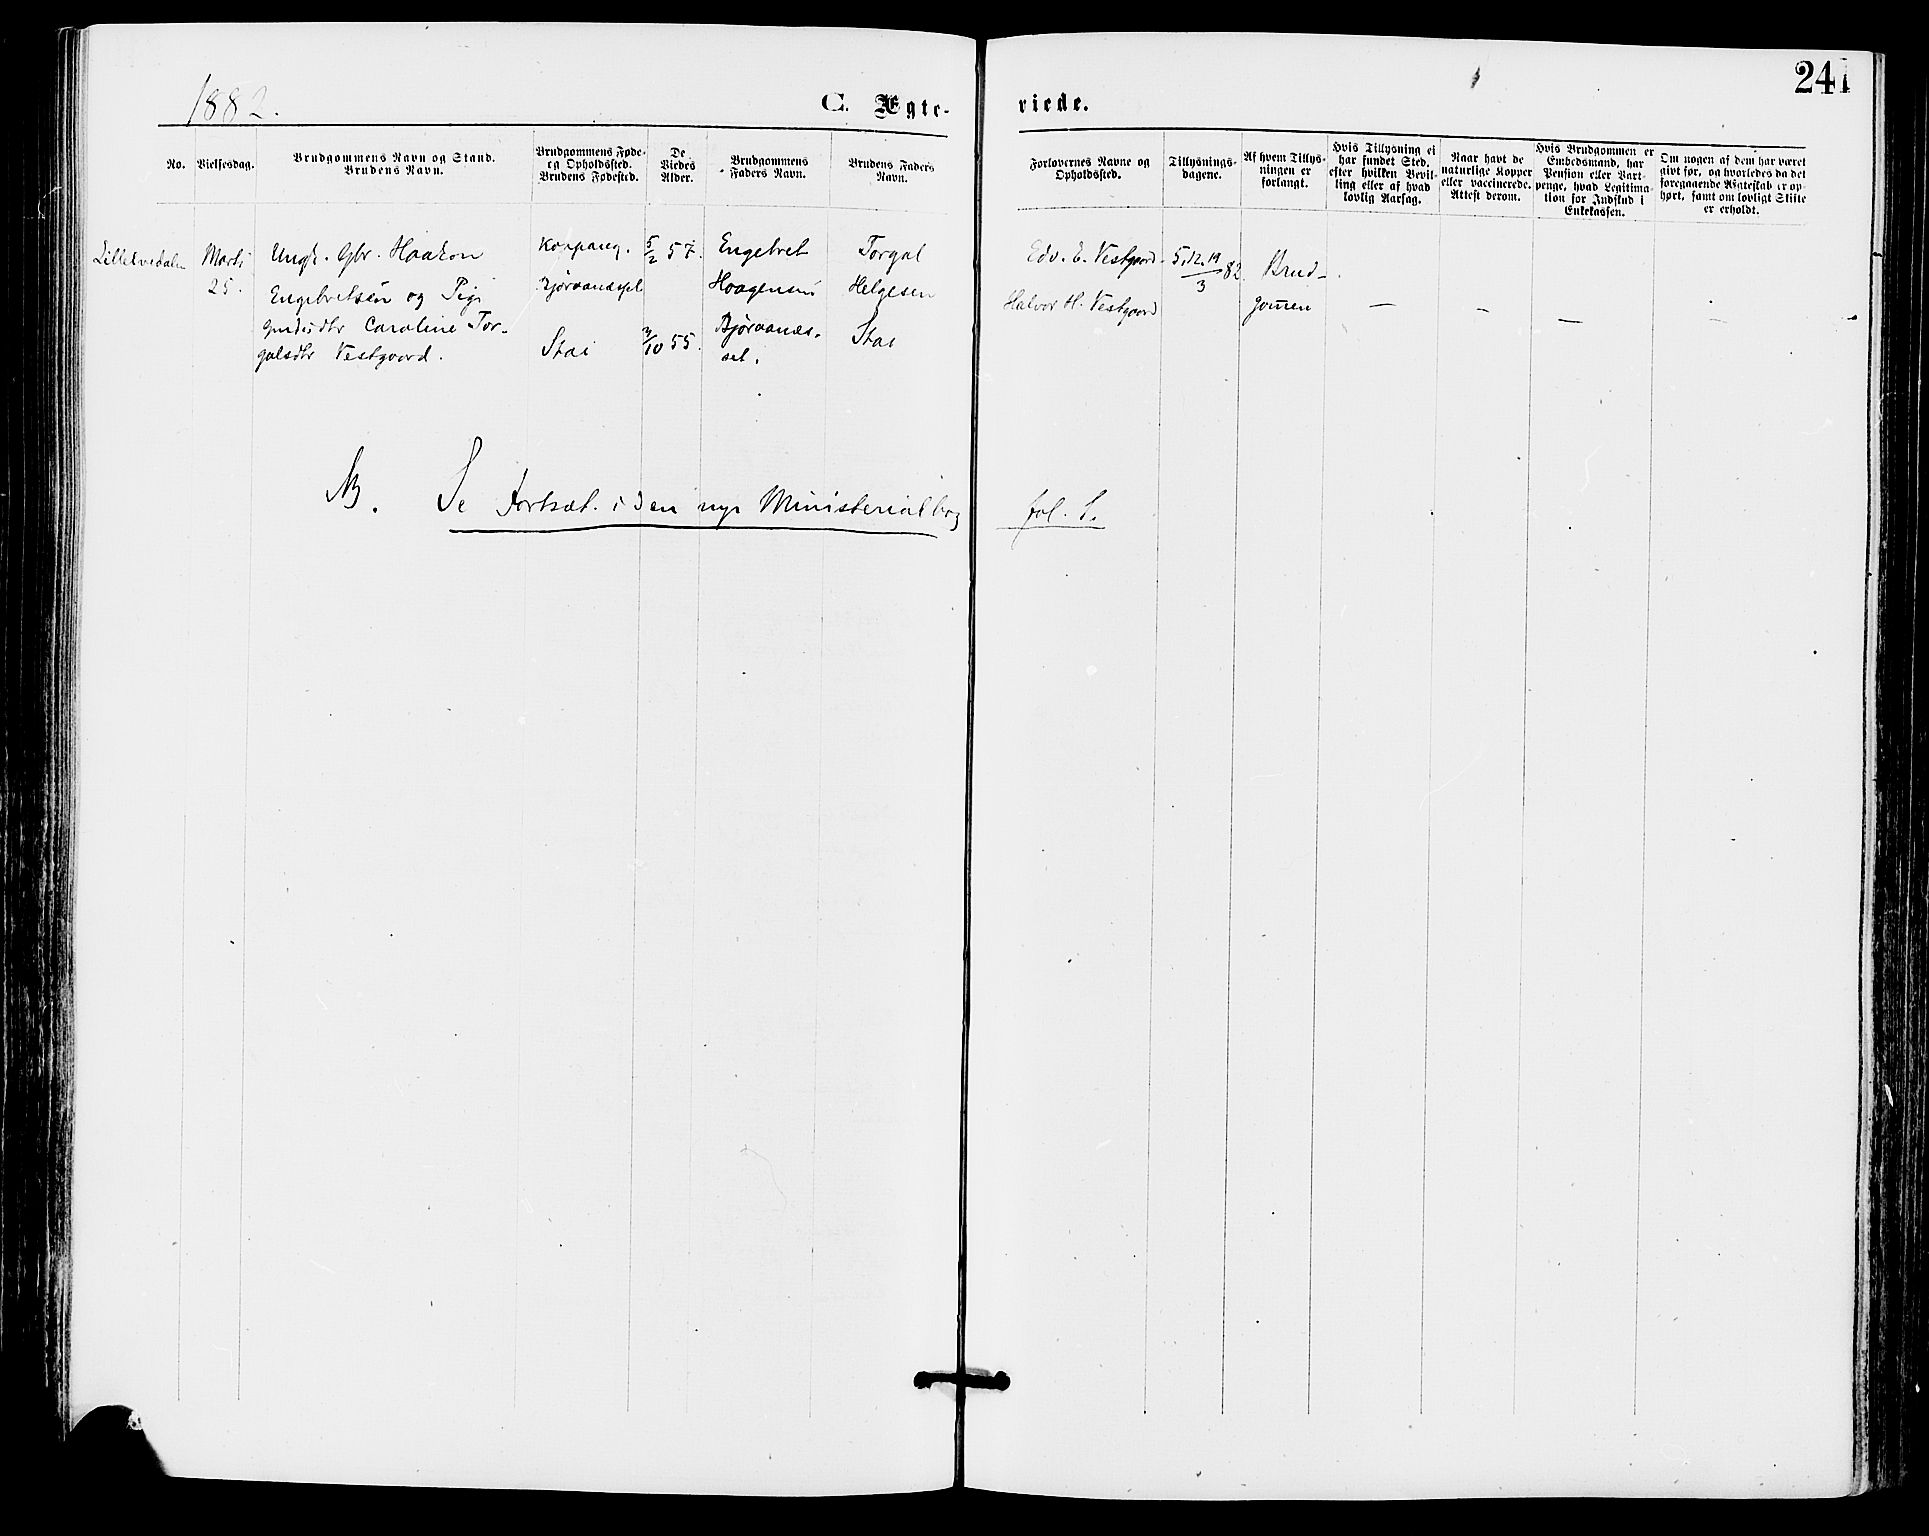 1882.
C. Ægte-
viede.
241
No.
Vielsesdag.
Brudgommens Navn og Stand.
Brudens Navn.
Brudgommens Føde-
og Opholdssted.
Brudens Fødested.
De
Viedes
Alder.
Brudgommens
Faders Navn.
Brudens Faders
Navn.
Forlovernes Navne og
Opholdssted.
Tillysnings-
dagene.
Af hvem Tillys-
ningen er
forlangt.
Hvis Tillysning ei
har fundet Sted,
efter hvilken Bevil-
ling eller af hvad
lovlig Aarsag.
Naar havt de
naturlige Kopper
eller vaccinerede.
Attest derom.
Hvis Brudgommen er
Embedsmand, har
Pension eller Vart-
penge, hvad Legitima-
tion for Indskud i
Enkekassen.
Om nogen af dem har været
givt før, og hvorledes da det
foregaaende Ægteskab er op-
hørt, samt om lovligt Skifte
er erholdt.
Lilleelvedalen
Marts
25.
Ungk. Gbr. Haakon
Engebretsen og Pige
Gmdsdtr Caroline Tor-
galsdtr Vestgaard.
Koppang.
Bjøraanes
Stai
5/2 57.
3/10 55.
Engebret
Haagensen
Bjøraanes-
set.
Torgal
Helgesen
Stai
Edv. E. Vestgaard.
Halvor H. Vestgaard
5, 12, 19
3 82.
Brud-
gomen
— — — —
NB. Se Fortsæt. i den nye Ministerialbog
fol. 1.